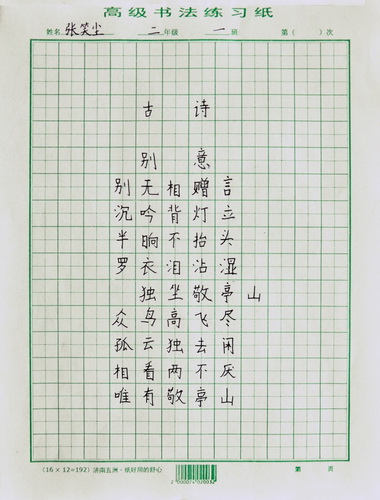 高级书法练习纸
姓名 张笑尘 二 年级 一 班 第( )次
古 诗
别 意
别无相赠言
沉吟背灯立
半晌不抬头
罗衣泪沾湿
独坐敬亭山
众鸟高飞尽
孤云独去闲
相看两不厌
唯有敬亭山
(16×12=192) 济南五洲·纸好用的舒心
第 页